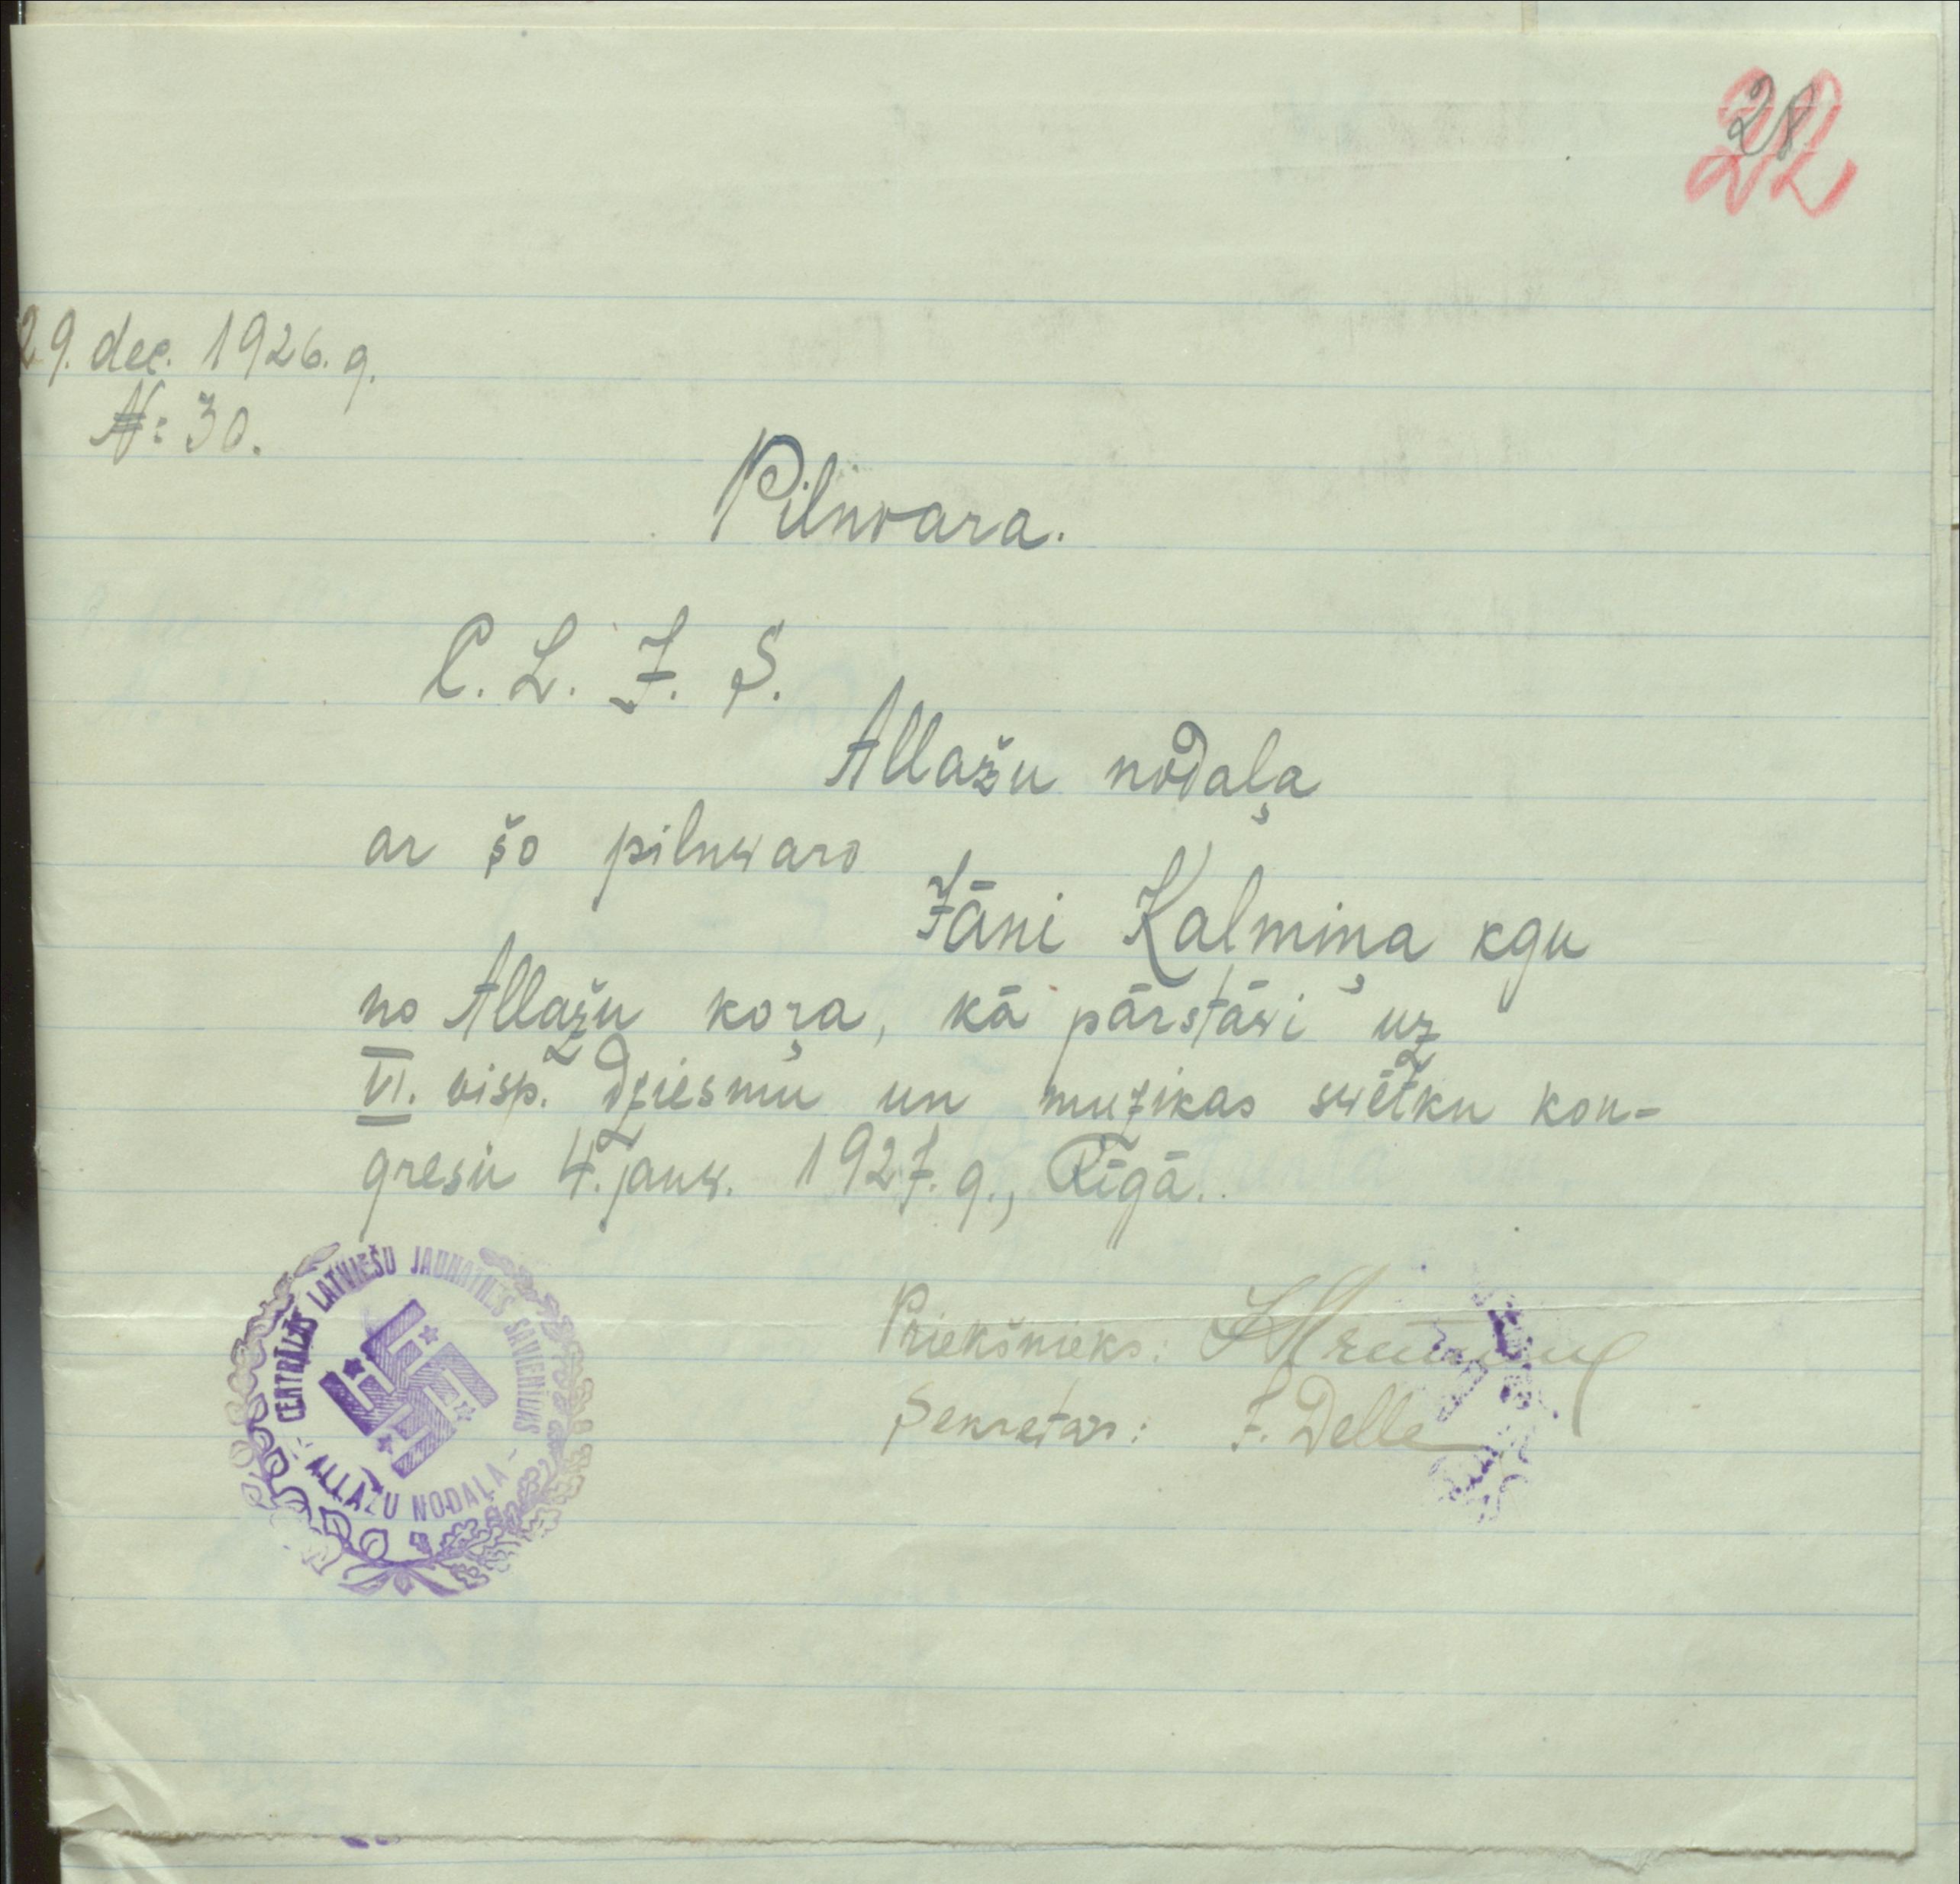 28
22
29. dec. 1926. g.
N: 30.
Pilnvara.
C. L. J. S.
Allažu nodaļa
ar šo pilnwaro
Jāni Kalmiņa kgu
no Allažu koŗa, kā pārstāwi uz
VI. visp. Dziesmu un muzikas swētku kon-
gresu 4. janw. 1927. g., Rīgā.
CENTRĀLĀS LATVIEŠU JAUNATNES SAVIENĪBAS
ALLAŽU NODAĻA
Priekšnieks:
Sekretars: J. Delle